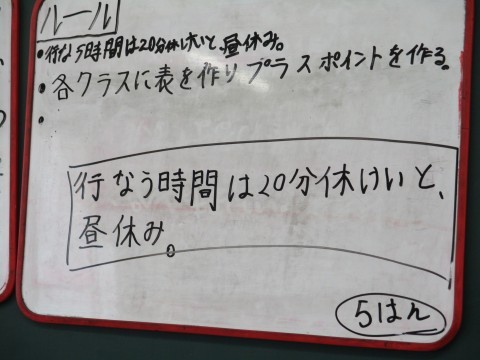 ルール
•行なう時間は20分休けいと、昼休み。
•各クラスに表を作りプラスポイントを作る。
•
行なう時間は20分休けいと、
昼休み。
5はん